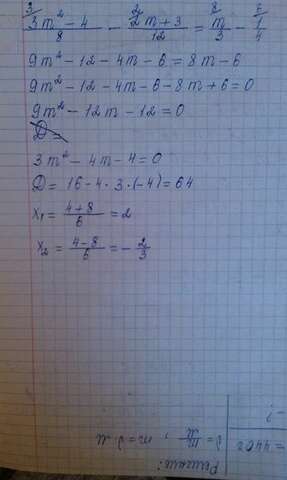 (3m² - 4)/8 - (2m + 3)/12 = m/3 - 1/4
9m² - 12 - 4m - 6 = 8m - 6
9m² - 12 - 4m - 6 - 8m + 6 = 0
9m² - 12m - 12 = 0
D =
3m² - 4m - 4 = 0
D = 16 - 4 · 3 · (-4) = 64
x₁ = (4 + 8)/6 = 2
x₂ = (4 - 8)/6 = - 2/3
Решение: